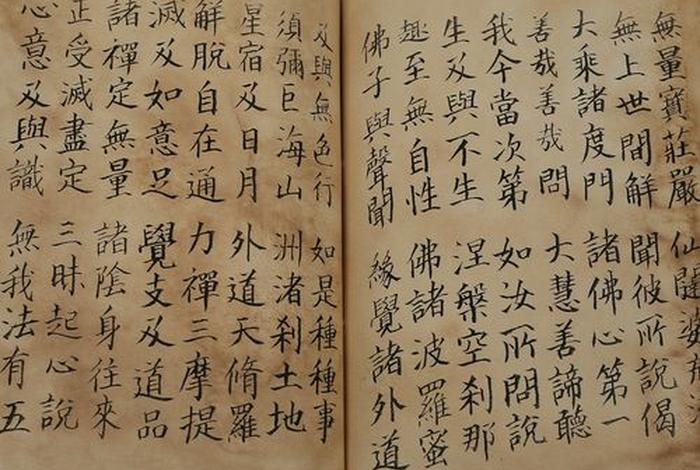 無量寶莊嚴 仙闥婆
無上世間解 聞彼所說偈
大乘諸度門 諸佛心第一
善哉善哉問 大慧善諦聽
我今當次第 如汝所問說
生及與不生 涅槃空剎那
趣至無自性 佛諸波羅蜜
佛子與聲聞 緣覺諸外道
及與無色行 如是種種事
須彌巨海山 洲渚剎土地
星宿及日月 外道天脩羅
解脫自在通 力禪三摩提
滅及如意足 覺支及道品
諸禪定無量 諸陰身往來
正受滅盡定 三昧起心說
心意及與識 無我法有五